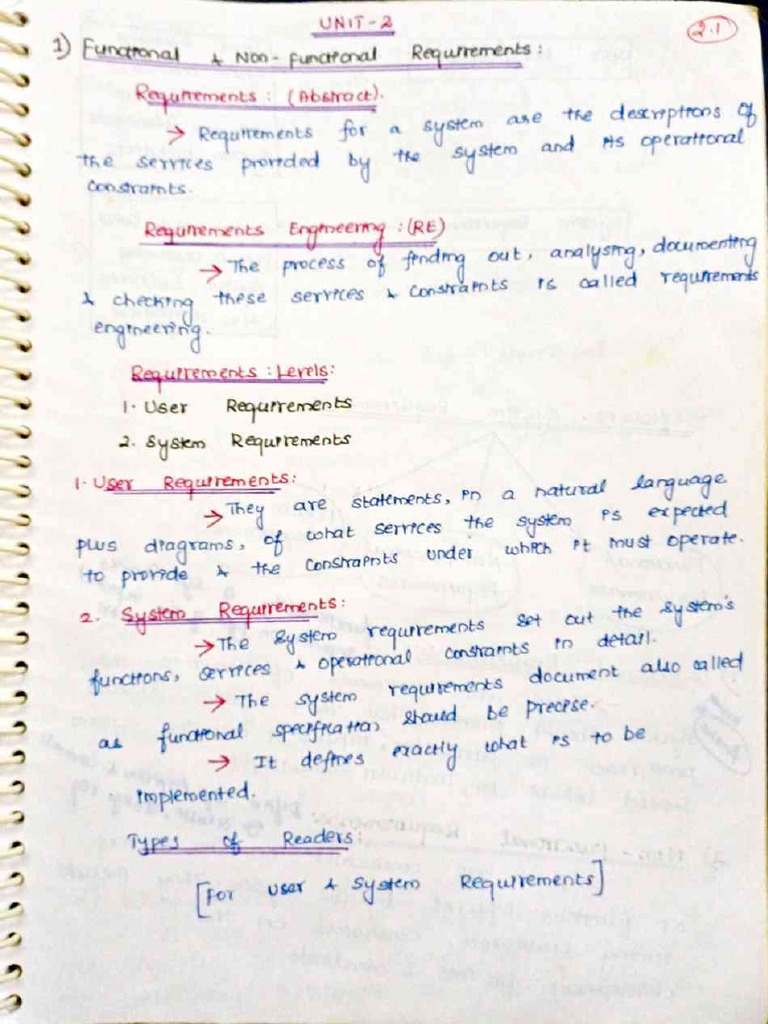 UNIT-2
2.1
1) Functional & Non-functional Requirements:
Requirements: (Abstract).
→ Requirements for a system are the descriptions of
the services provided by the system and its operational
constraints.
Requirements Engineering: (RE)
→ The process of finding out, analysing, documenting
& checking these services & constraints is called requirements
engineering.
Requirements: Levels:
1. User Requirements
2. System Requirements
1. User Requirements:
→ They are statements, in a natural language
plus diagrams, of what services the system is expected
to provide & the constraints under which it must operate.
2. System Requirements:
→ The system requirements set out the system's
functions, services & operational constraints in detail.
→ The system requirements document also called
as functional specification should be precise.
→ It defines exactly what is to be
implemented.
Types of Readers:
[For user & System Requirements]